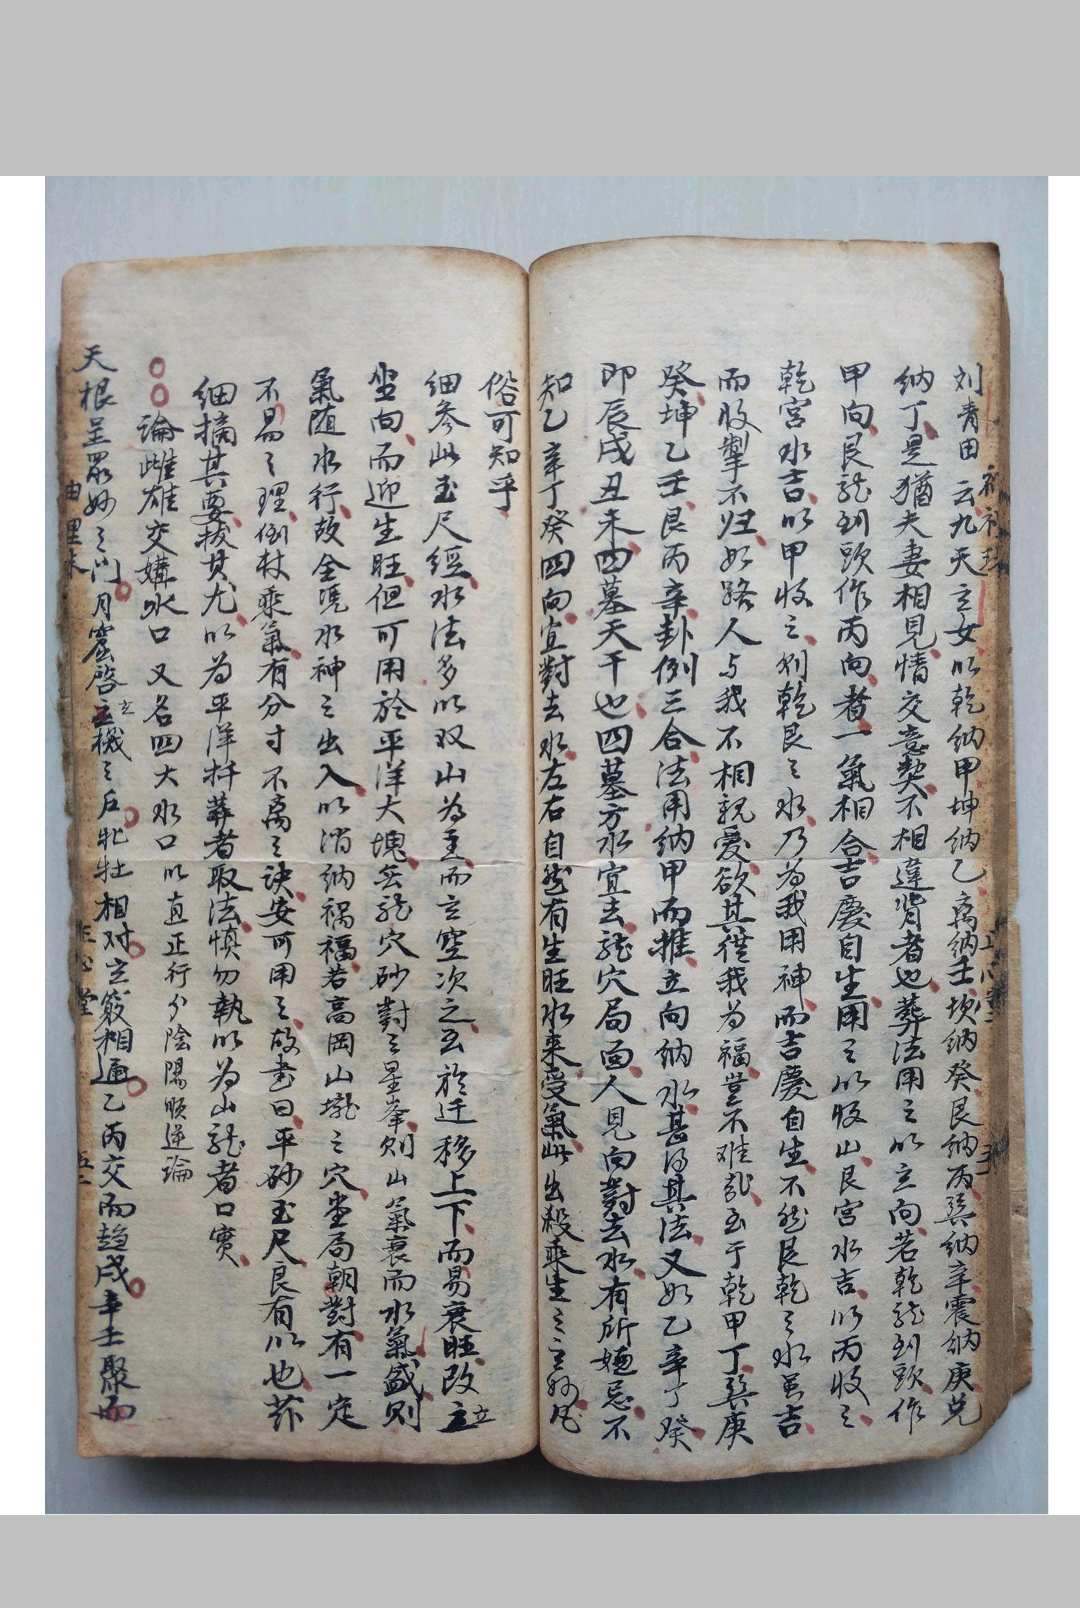 刘青田云九天玄女以乾納甲坤納乙离納壬坎納癸艮納丙巽納辛震納庚兑
納丁是猶夫妻相見情交意契不相違背者也葬法用之以立向若乾龙到頭作
甲向艮龙到頭作丙向者一氣相合吉慶自生用之以收山艮宮水吉以丙收之
乾宮水吉以甲收之則乾艮之水乃为我用神而吉慶自生不然艮乾之水虽吉
而收掣不归如路人与我不相親愛欲其從我为福豈不难哉至于乾甲丁巽庚
癸坤乙壬艮丙辛卦例三合法用納甲而推立向納水甚得其法又如乙辛丁癸
即辰戌丑未四墓天干也四墓方水宜去龙穴局面人見向對去水有所嫌忌不
知乙辛丁癸四向宜對去水左右自然有生旺水来受氣此出殺乘生之玄妙凡
俗可知乎
細参此玉尺經水法多以双山为主而立空次之玄於迁移上下而易衰旺改立
坐向而迎生旺但可用於平洋大塊若龙穴砂對之星峯則山氣衰而水氣盛則
氣随水行故全凭水神之出入以消納禍福若高岡山壠之穴坐局朝對有一定
不易之理倒杖乘氣有分寸不离之訣安可用之故書曰平砂玉尺良有以也兹
細摘其要拔其尤以为平洋扦葬者取法慎勿執以为山龙者口實
論雌雄交媾水口 又名四大水口 以直正行分陰陽順逆論
天根呈眾妙之门月窟啓玄機之户牝牡相对玄竅相通乙丙交而趋戌辛壬聚而